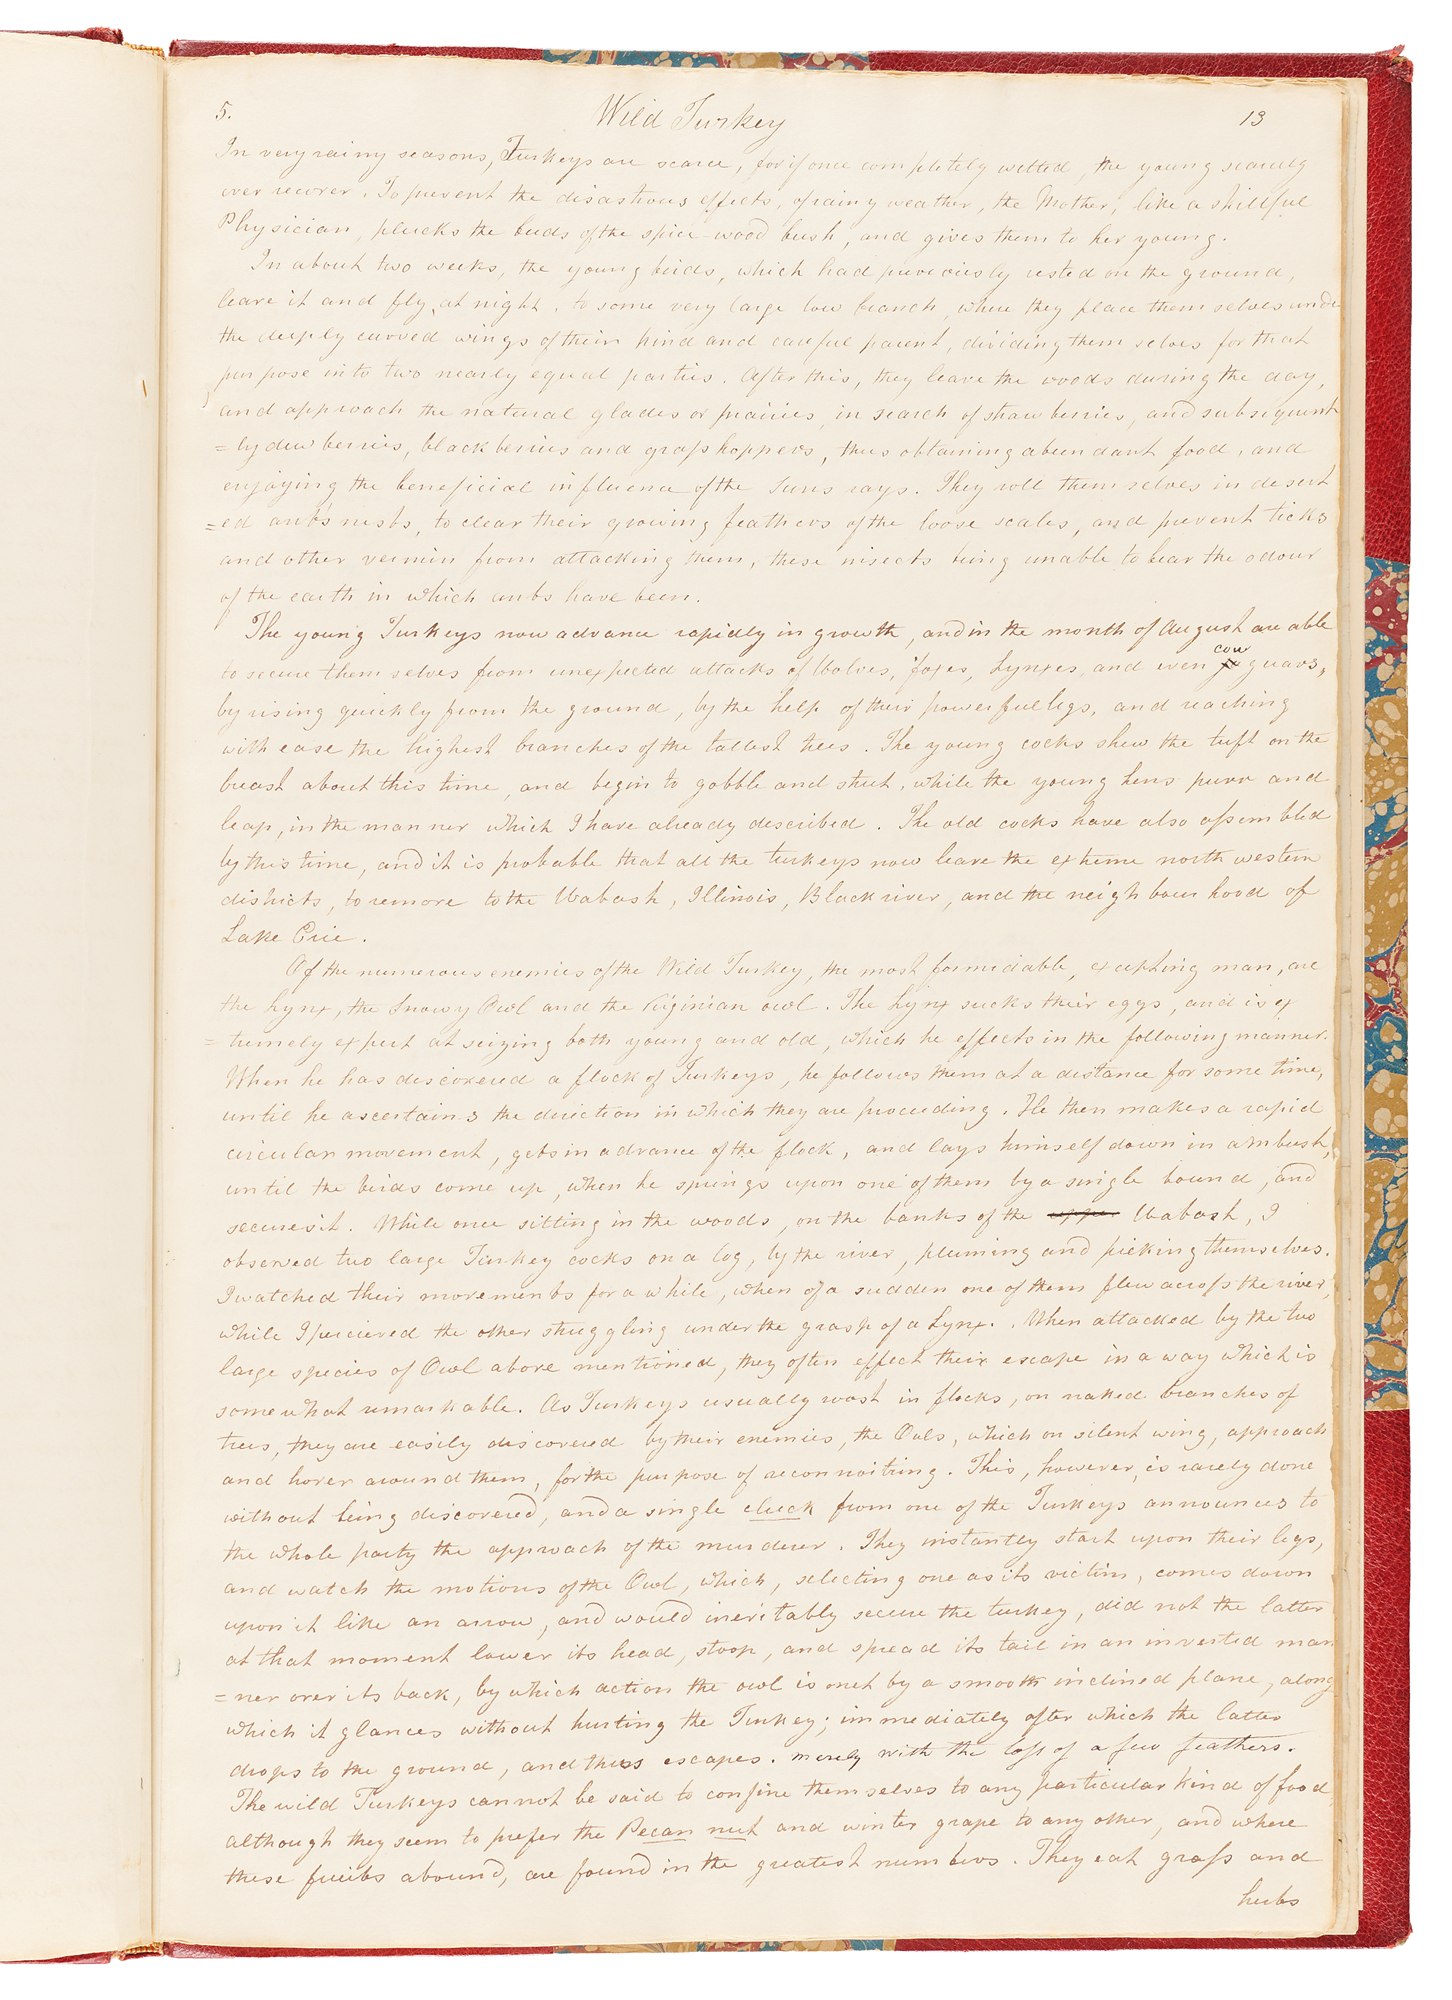 5.
Wild Turkey
13
In very rainy seasons, Turkeys are scarce, for if once completely wetted, the young scarcely
ever recover. To prevent the disastrous effects, of rainy weather, the Mother, like a skillful
Physician, plucks the buds of the spice-wood bush, and gives them to her young.
In about two weeks, the young birds, which had previously rested on the ground,
leave it and fly, at night, to some very large low branch, where they place themselves under
the deeply curved wings of their kind and careful parent, dividing themselves for that
purpose into two nearly equal parties. After this, they leave the woods during the day,
and approach the natural glades or prairies, in search of strawberries, and subsequent
=ly dewberries, blackberries and grasshoppers, thus obtaining abundant food, and
enjoying the beneficial influence of the Suns rays. They roll themselves in desert
=ed ants' nests, to clear their growing feathers of the loose scales, and prevent ticks
and other vermin from attacking them, these insects being unable to bear the odour
of the earth in which ants have been.
The young Turkeys now advance rapidly in growth, and in the month of August are able
to secure themselves from unexpected attacks of Wolves, foxes, Lynxes, and even couguars,
by rising quickly from the ground, by the help of their powerful legs, and reaching
with ease the highest branches of the tallest trees. The young cocks shew the tuft on the
breast about this time, and begin to gobble and strut, while the young hens purr and
leap, in the manner which I have already described. The old cocks have also assembled
by this time, and it is probable that all the turkeys now leave the extreme north western
districts, to remove to the Wabash, Illinois, Black river, and the neighbourhood of
Lake Erie.
Of the numerous enemies of the Wild Turkey, the most formidable, excepting man, are
the Lynx, the Snowy Owl and the Virginian owl. The Lynx sucks their eggs, and is ex
=tremely expert at seizing both young and old, which he effects in the following manner.
When he has discovered a flock of Turkeys, he follows them at a distance for some time,
until he ascertains the direction in which they are proceeding. He then makes a rapid
circular movement, gets in advance of the flock, and lays himself down in ambush,
until the birds come up, when he springs upon one of them by a single bound, and
secures it. While once sitting in the woods, on the banks of the upper Wabash, I
observed two large Turkey cocks on a log, by the river, pluming and picking themselves.
I watched their movements for a while, when of a sudden one of them flew across the river,
while I perceived the other struggling under the grasp of a Lynx. When attacked by the two
large species of Owl above mentioned, they often effect their escape in a way which is
somewhat remarkable. As Turkeys usually roost in flocks, on naked branches of
trees, they are easily discovered by their enemies, the Owls, which on silent wing, approach
and hover around them, for the purpose of reconnoitring. This, however, is rarely done
without being discovered, and a single cluck from one of the Turkeys announces to
the whole party the approach of the murderer. They instantly start upon their legs,
and watch the motions of the Owl, which, selecting one as its victim, comes down
upon it like an arrow, and would inevitably secure the turkey, did not the latter
at that moment lower its head, stoop, and spread its tail in an inverted man
=ner over its back, by which action the owl is met by a smooth inclined plane, along
which it glances without hurting the Turkey; immediately after which the latter
drops to the ground, and thus escapes. merely with the loss of a few feathers.
The wild Turkeys cannot be said to confine themselves to any particular kind of food,
although they seem to prefer the Pecan nut and winter grape to any other, and where
these fruits abound, are found in the greatest numbers. They eat grass and
herbs